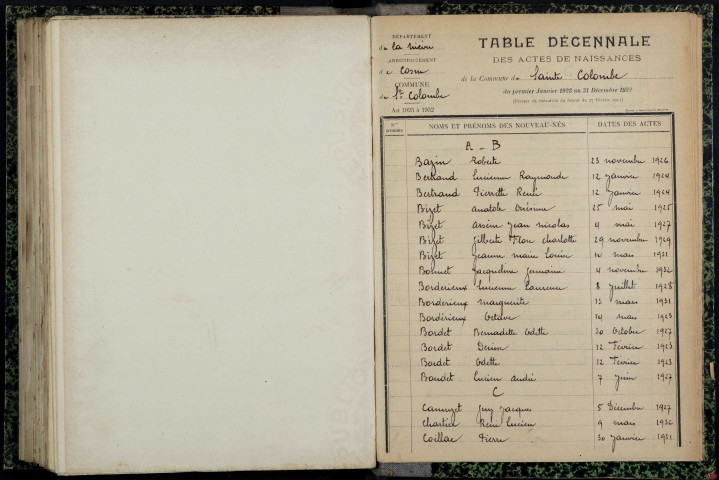 DÉPARTEMENT
de la Nièvre
ARRONDISSEMENT
de Cosne
COMMUNE
de Ste Colombe
An 1923 à 1932
TABLE DÉCENNALE
DES ACTES DE NAISSANCES
de la Commune de Sainte Colombe
du premier Janvier 1923 au 31 Décembre 1932
NOMS ET PRÉNOMS DES NOUVEAU-NÉS DATES DES ACTES
A - B
Bazin Roberte 23 novembre 1926
Bertrand Lucienne Raymonde 12 Janvier 1924
Bertrand Pierrette Renée 12 Janvier 1924
Bizet anatole Onésime 25 mai 1925
Bizet arsène Jean nicolas 4 mai 1927
Bizet Gilberte Flore charlotte 29 novembre 1929
Bizet Jeanne marie Louise 10 mars 1931
Jacqueline Germaine 4 novembre 1932
Bordérieux Lucienne Laurence 8 Juillet 1928
Bordérieux marguerite 13 mars 1931
Bordérieux Octave 14 mars 1923
Bordet Bernadette Odette 30 Octobre 1927
Bordet Denise 12 Février 1923
Bordet Odette 12 Février 1923
Boudet Lucien andré 7 Juin 1927
C
Camuzet Guy Jacques 5 Décembre 1927
chartier René Lucien 9 mars 1932
Coillac Pierre 30 Janvier 1931